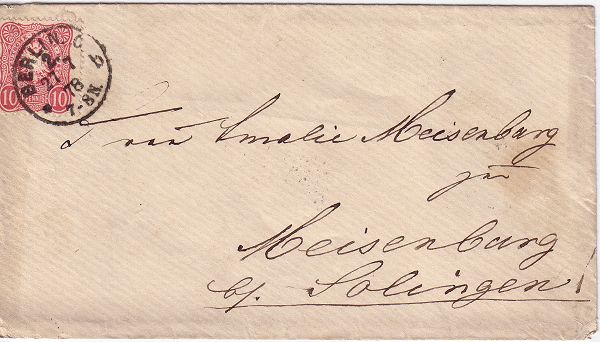 BERLIN. C.
2.
27 7
78
7-8N.
* b
10 PFENNIGE 10
Frau Amalie Meisenburg
zu
Meisenburg
bf. Solingen!